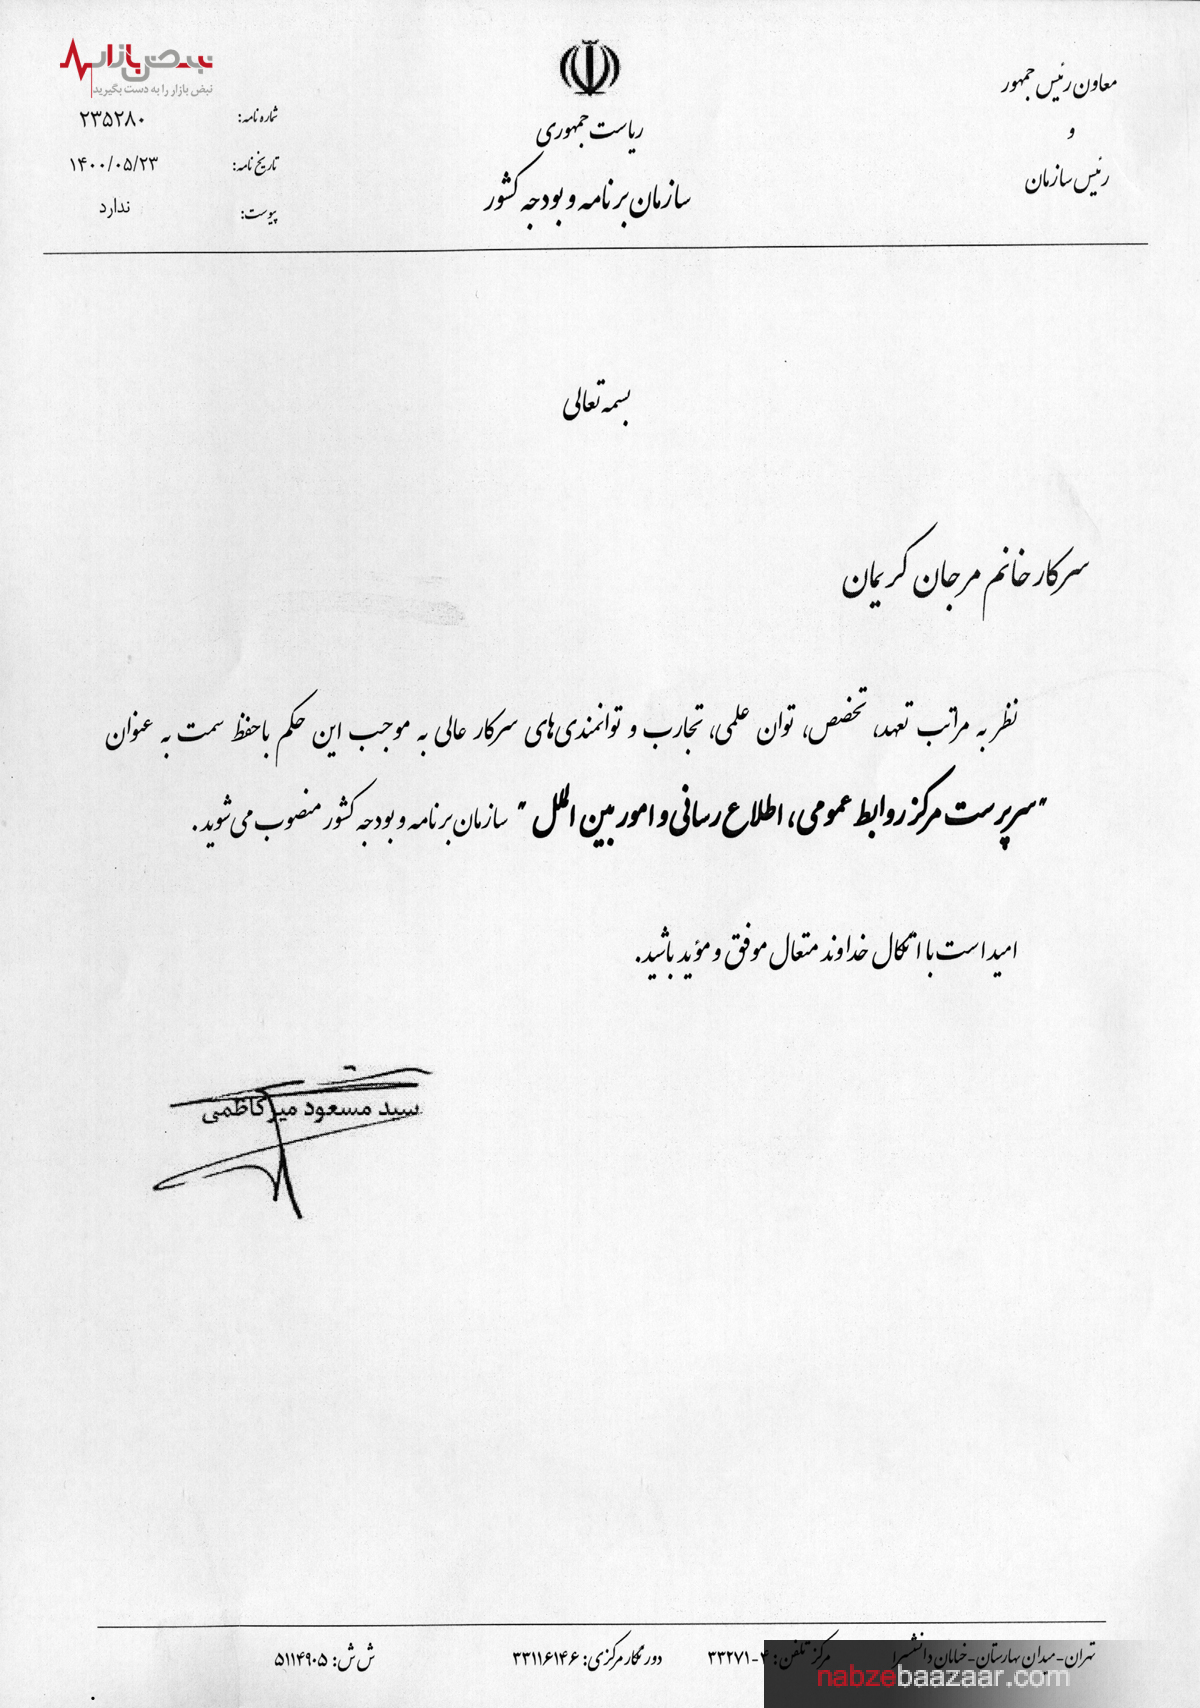 معاون رئیس جمهور
و
رئیس سازمان
ریاست جمهوری
سازمان برنامه و بودجه کشور
نبض بازار
نبض بازار را به دست بگیرید
شماره نامه: ۲۳۵۲۸۰
تاریخ نامه: ۱۴۰۰/۰۵/۲۳
پیوست: ندارد
بسمه تعالی
سرکار خانم مرجان کریمان
نظر به مراتب تعهد، تخصص، توان علمی، تجارب و توانمندی‌های سرکار عالی به موجب این حکم با حفظ سمت به عنوان
"سرپرست مرکز روابط عمومی، اطلاع رسانی و امور بین الملل" سازمان برنامه و بودجه کشور منصوب می‌شوید.
امید است با اتکال خداوند متعال موفق و مؤید باشید.
سید مسعود میرکاظمی
تهران-میدان بهارستان-خیابان دانشسرا مرکز تلفن: ۴-۳۳۲۷۱ دورنگار مرکزی: ۳۳۱۱۶۱۴۶ ش ش: ۵۱۱۴۹۰۵
nabzebaazaar.com